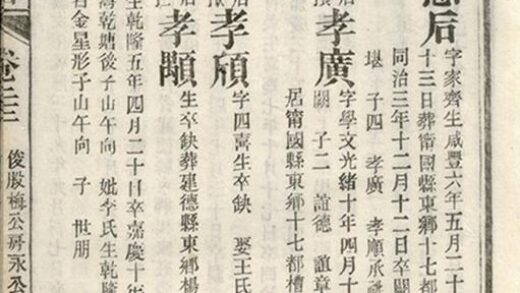 后
字家齊生咸豐六年五月二十
十三日葬甯國縣東鄉十七都
同治三年十二月十二日卒闕
堪 子四 孝廣 孝順承祧
后
孝廣
字學文光緒十年四月十
闕 子二 誼德 誼章
居甯國縣東鄉十七都槽
后
孝
字四喜生卒缺 娶王氏
孝顒
生卒缺葬建德縣東鄉楊
生乾隆五年四月二十日卒嘉慶十年
灣乾塘後子山午向 妣李氏生乾隆
金星形子山午向 子 世朋
卷
俊股梅公房永公